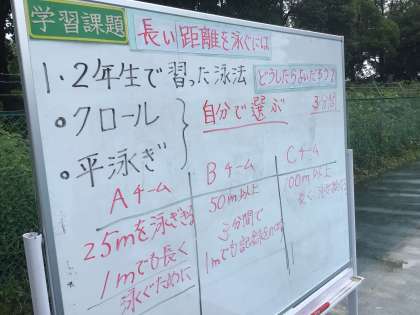 学習課題
長い距離を泳ぐには
どうしたらよいだろう?
1・2年生で習った泳法
・クロール
・平泳ぎ
自分で選ぶ
3分間
Aチーム
25mを泳ぎきる
1mでも長く
泳ぐために
Bチーム
50m以上
3分間で
1mでも記録を
Cチーム
100m以上